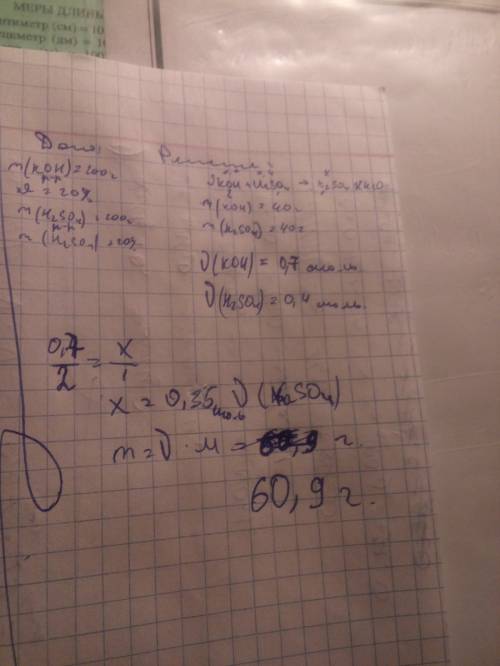 МЕРЫ ДЛИНЫ
нтиметр (см) = 10
ециметр (дм) = 1
Дано:
Решение:
m(KOH) = 200г
р-р
20%
m(H₂SO₄) = 200г
р-р
(H₂SO₄) = 20%
2KOH + H₂SO₄ → K₂SO₄ + 2H₂O
m(KOH) = 40г
m(H₂SO₄) = 40г
ν(KOH) = 0,7 моль
ν(H₂SO₄) = 0,4 моль.
0,7/2 = x/1
x = 0,35 моль ν (K₂SO₄)
m = ν · M = г.
60,9 г.